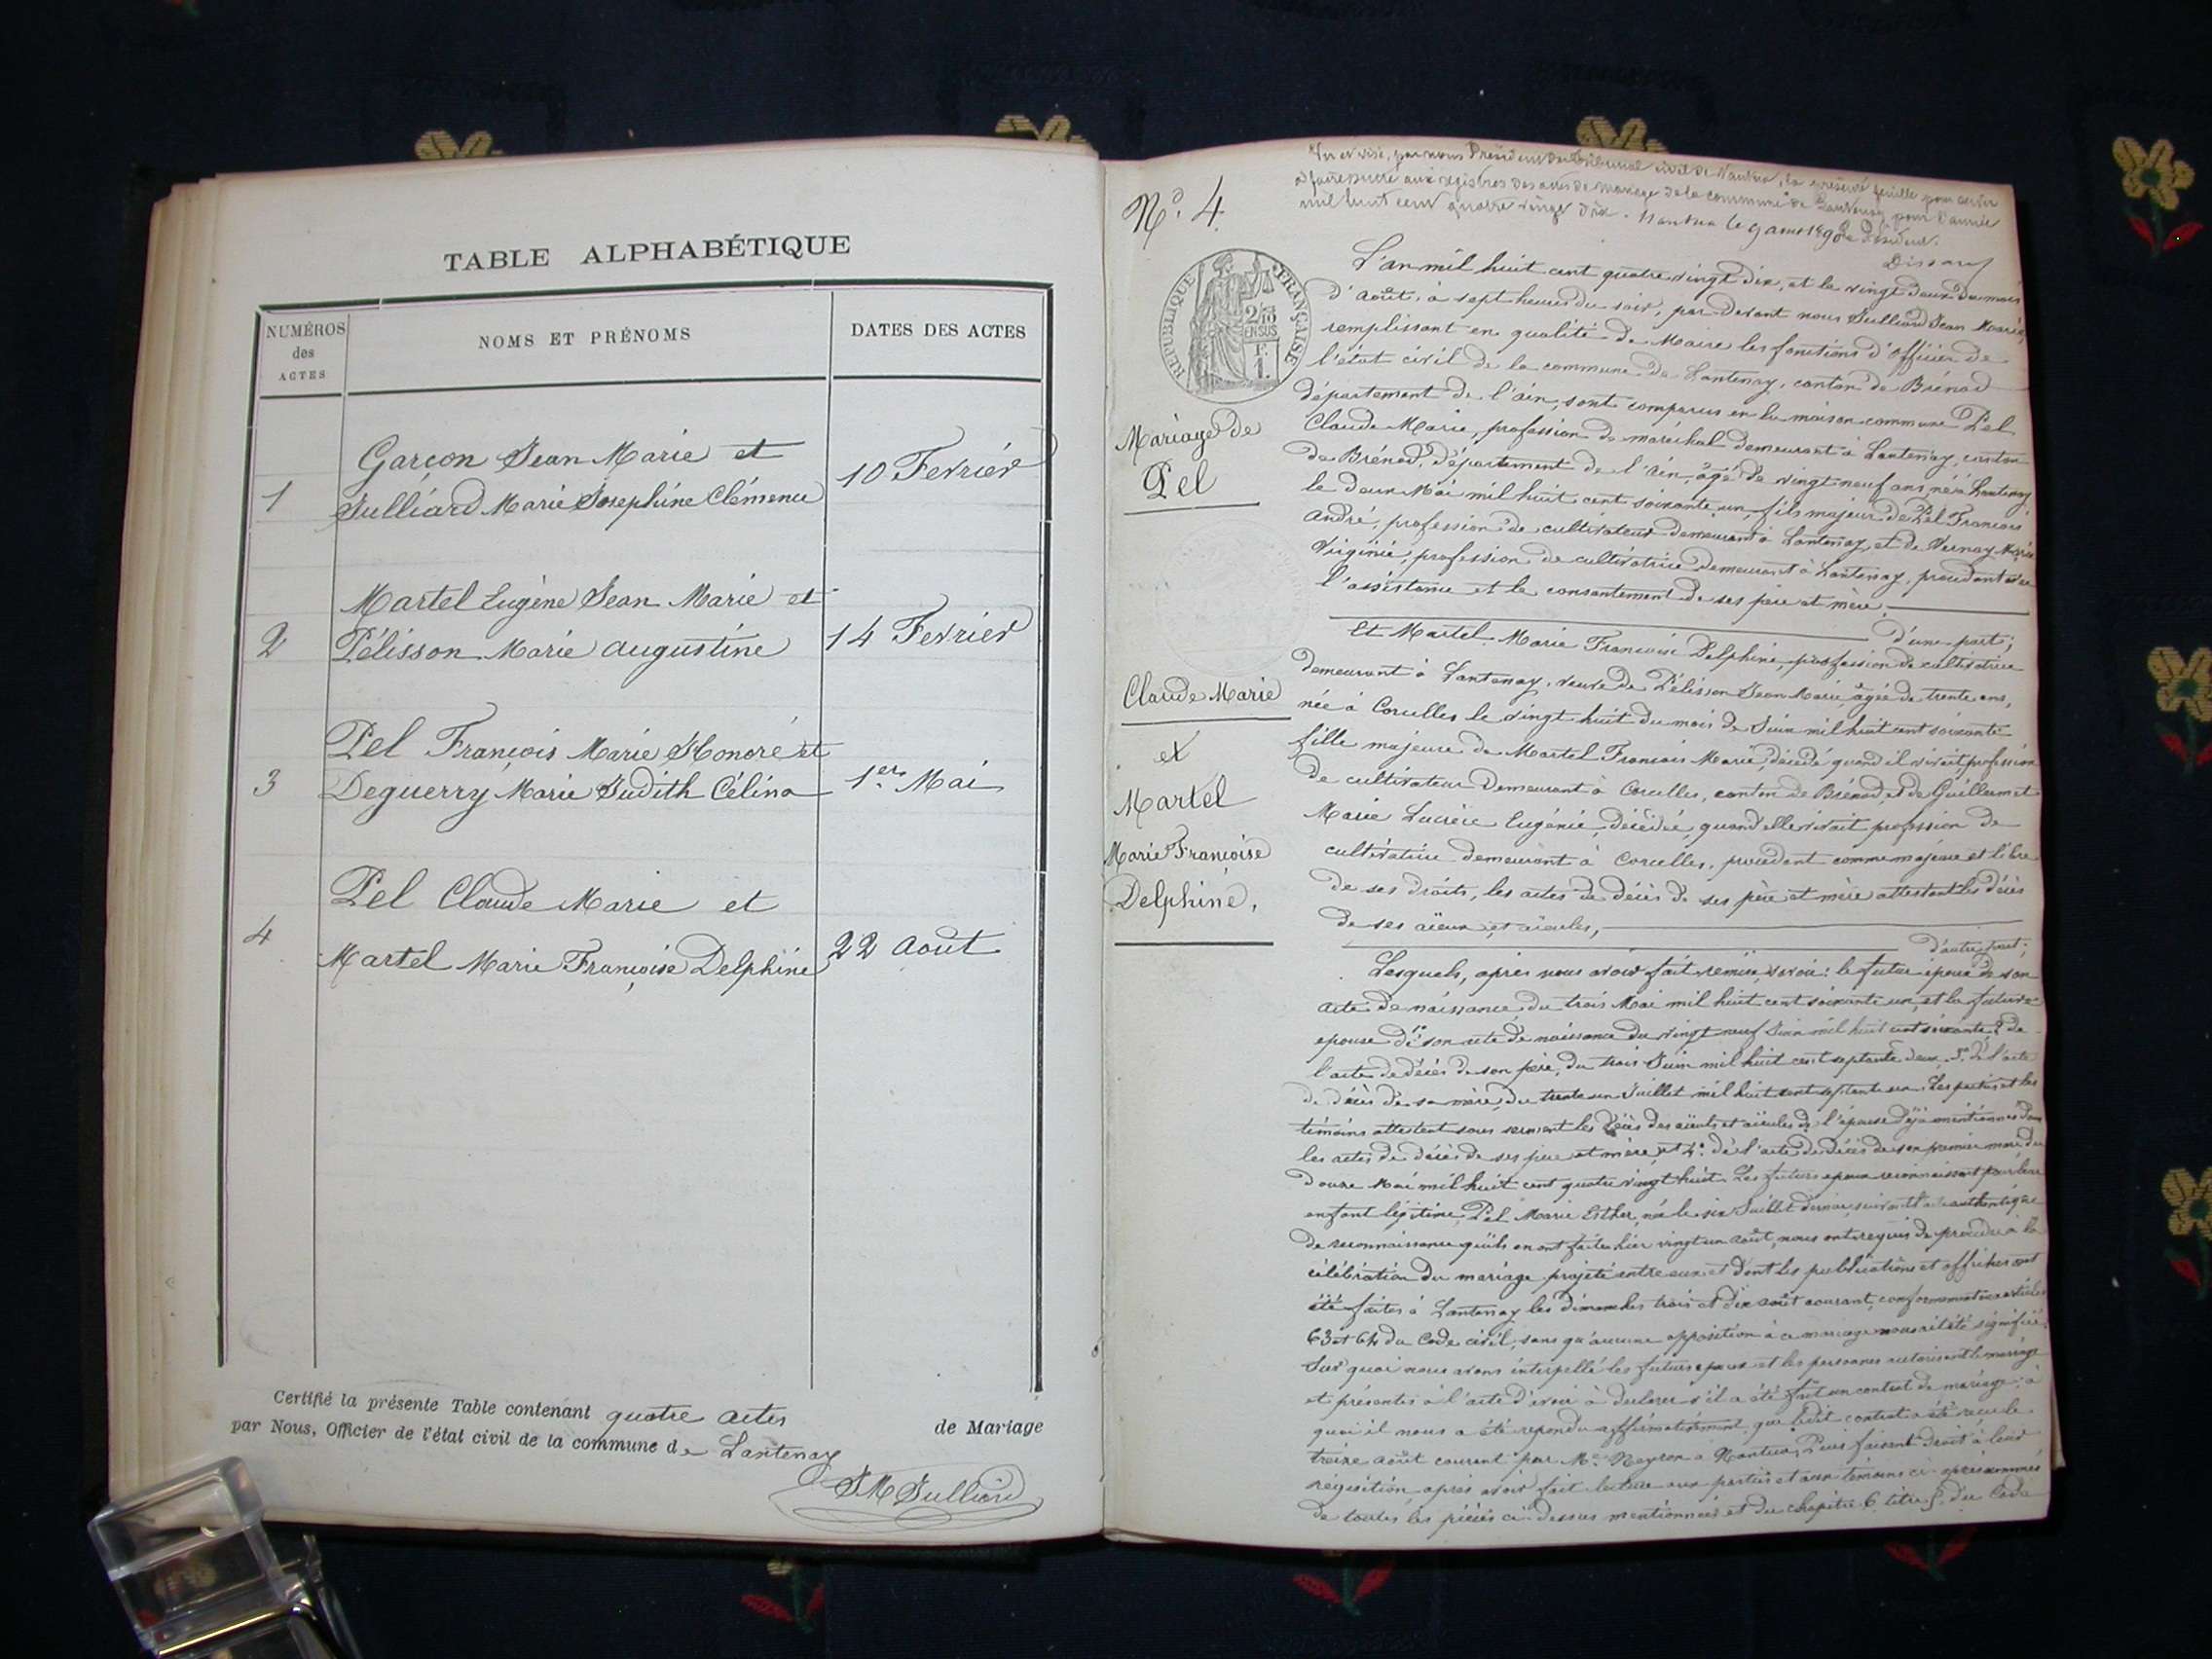 TABLE ALPHABÉTIQUE
NUMÉROS des ACTES
NOMS ET PRÉNOMS
DATES DES ACTES
Garçon Jean Marie et
1 Julliard Marie Josephine Clémence 10 Fevrier
Martel Eugène Jean Marie et
2 Pélisson Marie Augustine 14 Fevrier
Pel François Marie Honoré et
3 Deguerry Marie Judith Célina 1er Mai
Pel Claude Marie et
4 Martel Marie Françoise Delphine 22 Août
Certifié la présente Table contenant quatre actes de Mariage
par Nous, Officier de l'état civil de la commune de Lantenay
JM Julliard
Vu et visé, par nous Président du Tribunal civil de Nantua, la présente feuille pour
aux registres des actes de mariage de la commune de Lantenay pour l'année
mil huit cent quatre vingt dix. Nantua le 9 août 1890 Le Président.
No. 4
RÉPUBLIQUE FRANÇAISE
2/10 EN SUS
F. 1.
Mariage de
Pel
Claude Marie
et
Martel
Marie Françoise
Delphine,
L'an mil huit cent quatre vingt dix, et le vingt deux du mois
d'Août, à sept heures du soir, par devant nous Julliard Jean Marie,
remplissant en qualité de Maire les fonctions d'officier de
l'état civil de la commune de Lantenay, canton de Brénod
département de l'ain, sont comparus en la maison commune Pel
Claude Marie, profession de maréchal demeurant à Lantenay, canton
de Brénod, département de l'ain, âgé de vingt neuf ans, né à Lantenay
le deux Mai mil huit cent soixante un, fils majeur de Pel François
André, profession de cultivateur demeurant à Lantenay, et de Vernay Marie
Virginie, profession de cultivatrice demeurant à Lantenay, procédant avec
l'assistance et le consentement de ses père et mère.
d'une part;
Et Martel Marie Françoise Delphine, profession de cultivatrice
demeurant à Lantenay, veuve de Pélisson Jean Marie, âgée de trente ans,
née à Corcelles le vingt huit du mois de Juin mil huit cent soixante
fille majeure de Martel François Marie, décédé quand il vivait profession
de cultivateur demeurant à Corcelles, canton de Brénod, et de Guillermet
Marie Lucrèce Eugénie, décédée, quand elle vivait profession de
cultivatrice demeurant à Corcelles, procédant comme majeure et libre
de ses droits, les actes de décès de ses père et mère attestant les décès
de ses aïeux et aïeules,
d'autre part;
Lesquels, après nous avoir fait remise, savoir: le futur époux de son
acte de naissance du trois Mai mil huit cent soixante un, et la future
epouse 1o de son acte de naissance du vingt neuf Juin mil huit cent soixante, 2o de
l'acte de décès de son père, du trois Juin mil huit cent septante deux, 3o de l'acte
de décès de sa mère, du trente un Juillet mil huit cent septante un. Les parties et les
témoins attestent sous serment les décès des aïeuls et aïeules de l'épouse déjà mentionnés dans
les actes de décès de ses père et mère, et 4o de l'acte de décès de son premier mari du
douze Mai mil huit cent quatre vingt huit. Les futurs epoux reconnaissent pour leur
enfant légitime, Pel Marie Esther, née le six Juillet dernier, suivant l'acte authentique
de reconnaissance qu'ils en ont faite hier vingt un août, nous ont requis de procéder à la
célébration du mariage projeté entre eux et dont les publications et affiches ont
été faites à Lantenay les dimanches trois et dix août courant, conformément aux articles
63 et 64 du Code civil, sans qu'aucune opposition à ce mariage nous ait été signifiée.
Sur quoi nous avons interpellé les futurs epoux et les personnes autorisant le mariage
et présentes à l'acte d'avoir à déclarer s'il a été fait un contrat de mariage; à
quoi il nous a été répondu affirmativement que ledit contrat a été reçu le
treize août courant par Me Neyron a Nantua, Puis faisant droit à leur
réquisition, après avoir fait lecture aux parties et aux témoins ci-après nommés
de toutes les pièces ci-dessus mentionnées et du chapitre 6 titre 5 du Code